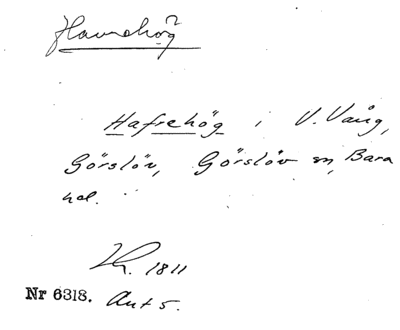 Havrehög
Hafrehög i V. Vång,
Görslöv, Görslöv sn, Bara
hd.
Lh. 1811
Nr 6318. Akt 5.